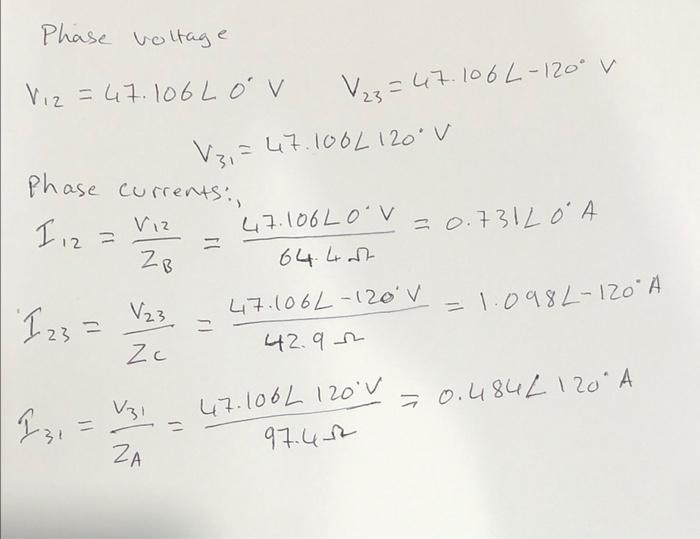 Phase voltage
V12 = 47.106∠0° V V23 = 47.106∠-120° V
V31 = 47.106∠120° V
Phase currents:,
I12 = V12/ZB = 47.106∠0° V/64.4Ω = 0.731∠0° A
I23 = V23/ZC = 47.106∠-120° V/42.9Ω = 1.098∠-120° A
I31 = V31/ZA = 47.106∠120° V/97.4Ω = 0.484∠120° A